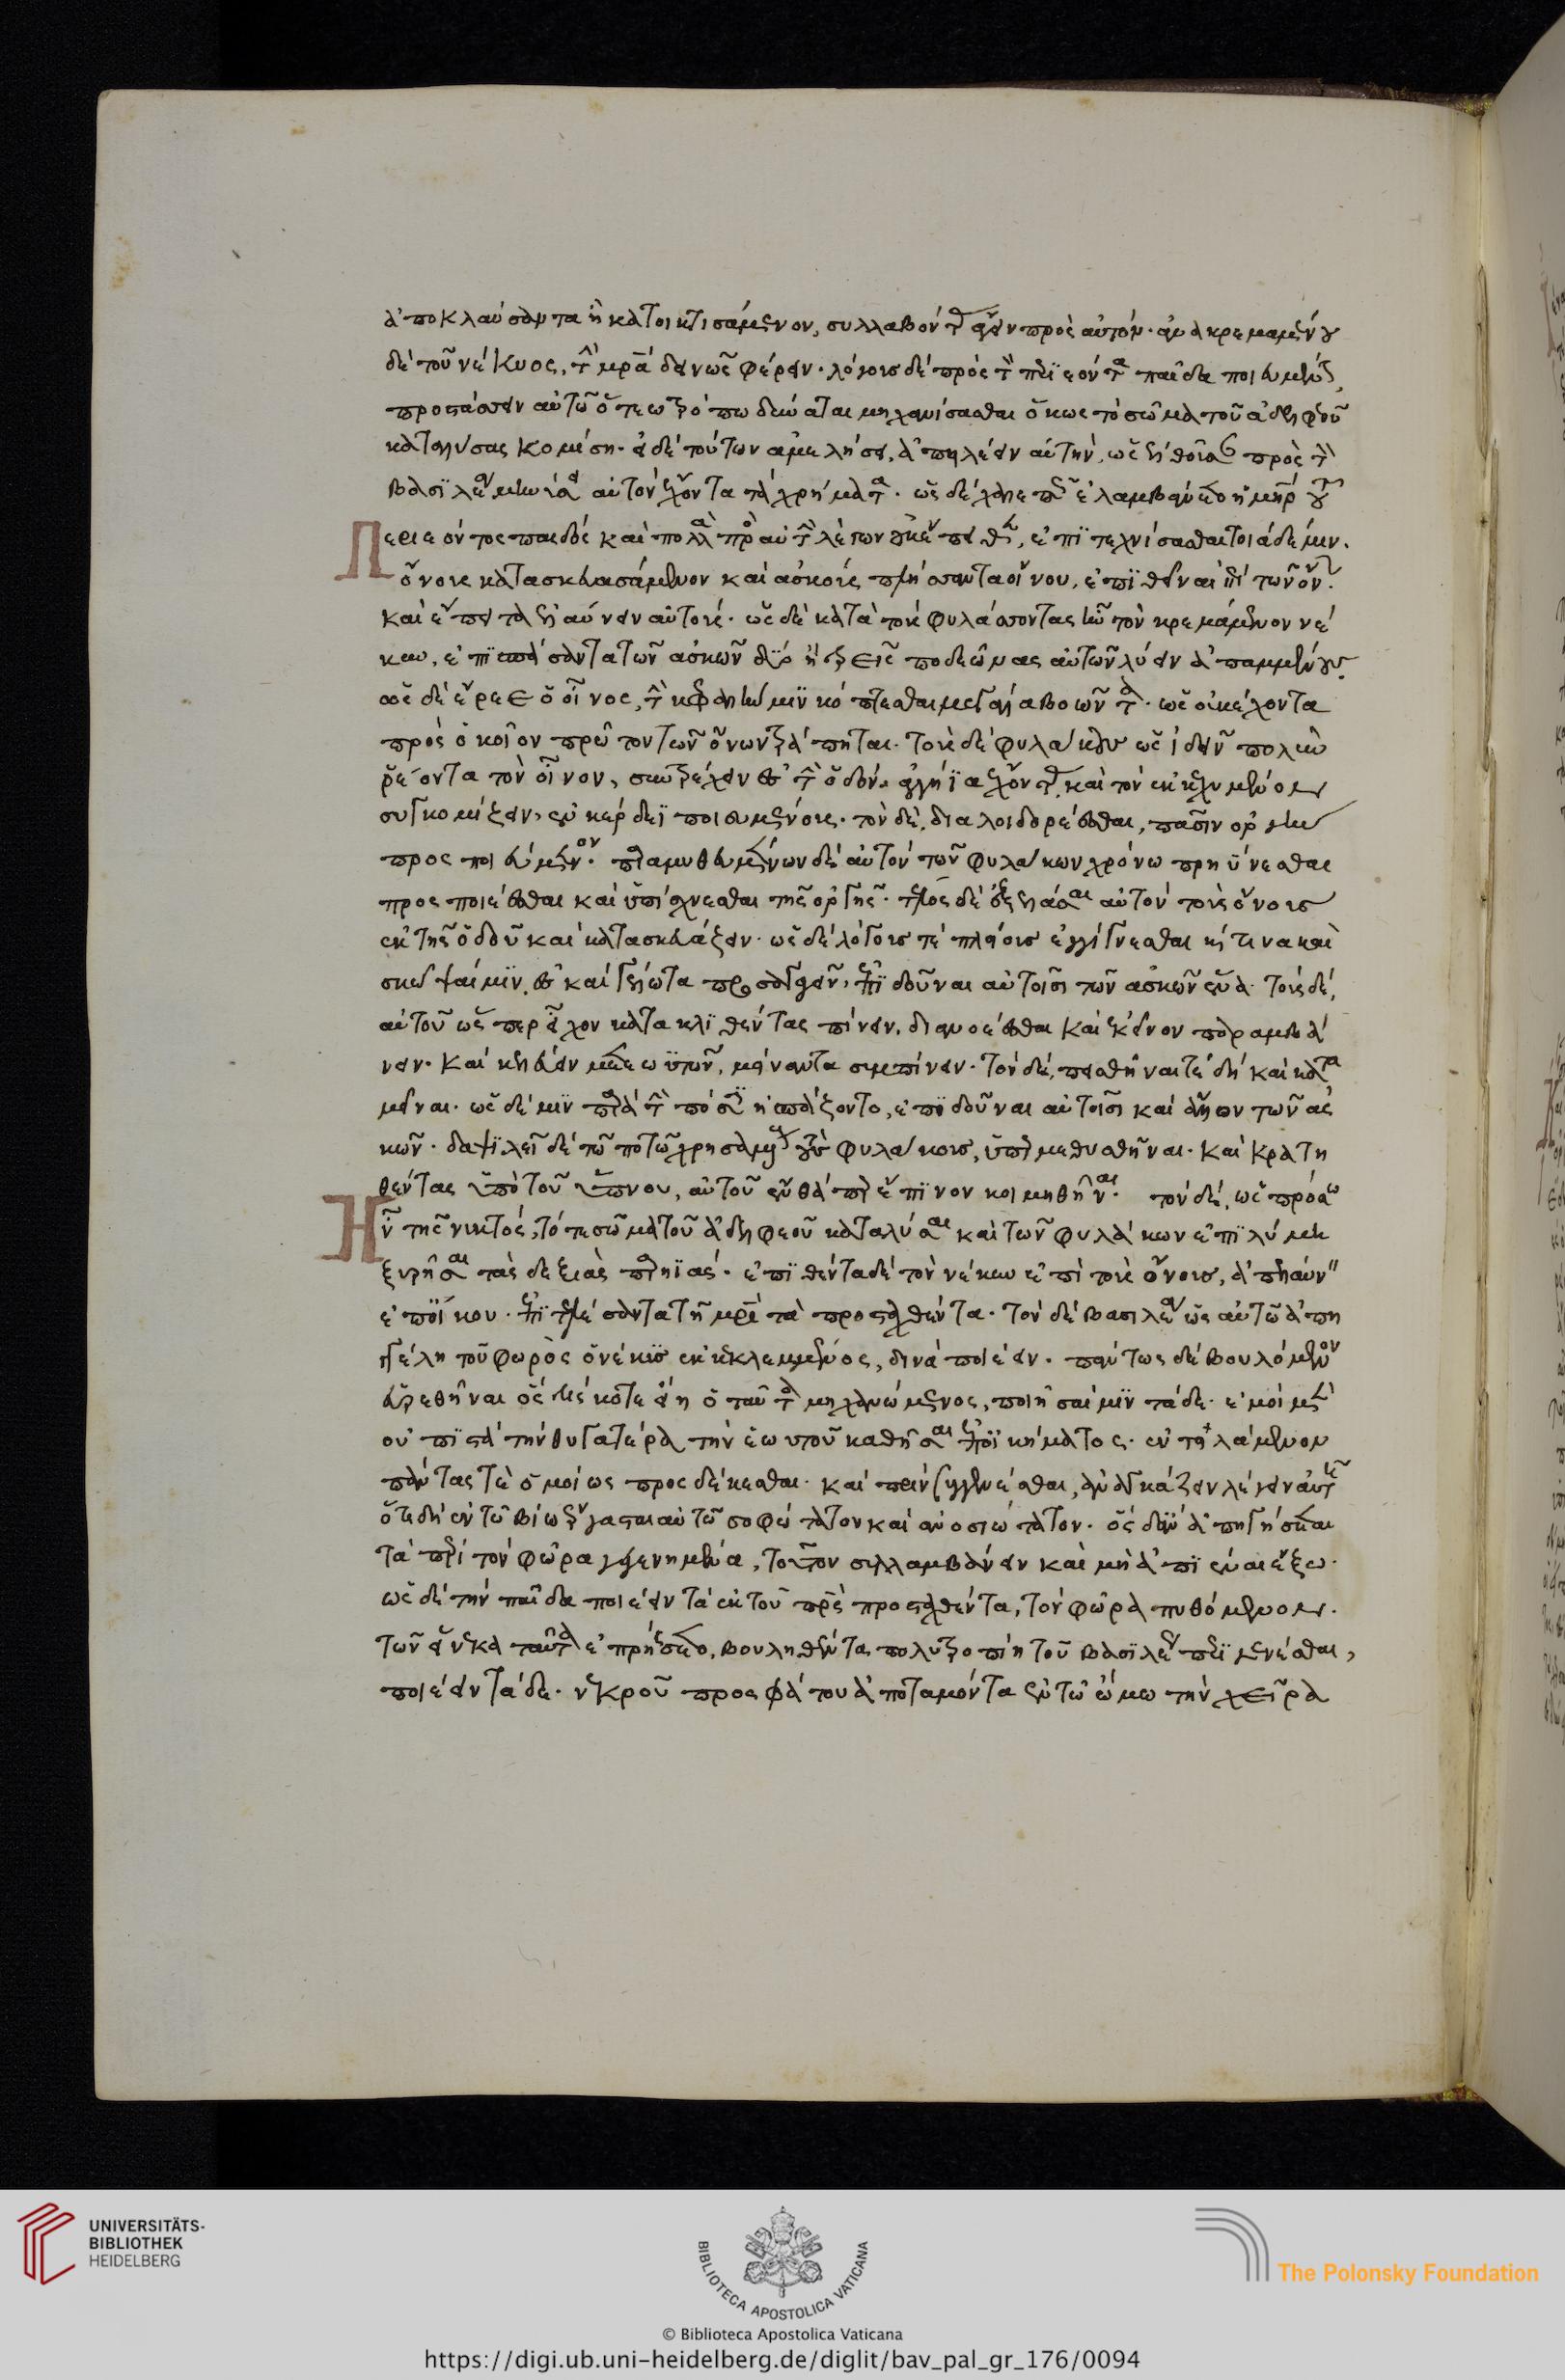 ἀποκλαύσαντα ἢ κατοικτισάμενον, συλλαβόντας ἄγειν πρὸς αὐτόν· ἀνακρεμαμένου
δὲ τοῦ νέκυος, τὴν μητέρα δεινῶς φέρειν· λόγους δὲ πρὸς τὸν περιεόντα παῖδα ποιευμένην,
προστάσσειν αὐτῷ ὅτεῳ τρόπῳ δύναται μηχανήσασθαι ὅκως τὸ σῶμα τοῦ ἀδελφεοῦ
καταλύσας κομίσῃ· εἰ δὲ τούτων ἀμελήσει, ἀπειλέειν αὐτὴν, ὡς ἐλθοῦσα πρὸς τὸν
βασιλέα μηνύσει αὐτὸν ἔχοντα τὰ χρήματα· ὡς δὲ χαλεπῶς ἐλαμβάνετο ἡ μήτηρ τοῦ
Περιεόντος παιδός καὶ πολλὰ πρὸς αὐτὴν λέγων οὐκ ἔπειθε, ἐπιτεχνήσασθαι τοιάδε μιν·
ὄνους κατασκευασάμενον καὶ ἀσκοὺς πλήσαντα οἴνου, ἐπιθεῖναι ἐπὶ τῶν ὄνων·
καὶ ἔπειτα ἐλαύνειν αὐτούς· ὡς δὲ κατὰ τοὺς φυλάσσοντας ἦν τὸν κρεμάμενον νέ
κυν, ἐπισπάσαντα τῶν ἀσκῶν δύο ἢ τρεῖς ποδεῶνας αὐτῶν λύειν ἀπαμμένους·
ὡς δὲ ἔρρεε ὁ οἶνος, τὴν κεφαλὴν μιν κόπτεσθαι μεγάλα βοῶντα· ὡς οὐκ ἔχοντα
πρὸς ὁκοῖον πρῶτον τῶν ὄνων τράπηται· τοὺς δὲ φυλάκους ὡς ἰδεῖν πολλὸν
ῥέοντα τὸν οἶνον, συντρέχειν ἐς τὴν ὁδὸν ἀγγήϊα ἔχοντας, καὶ τὸν ἐκκεχυμένον
συγκομίζειν, ἐν κέρδεϊ ποιευμένους· τὸν δὲ, διαλοιδορέεσθαι, πᾶσιν ὀργὴν
προσποιεύμενον· παραμυθευμένων δὲ αὐτὸν τῶν φυλάκων χρόνῳ πρηΰνεσθαι
προσποιέεσθαι καὶ ὑπίεσθαι τῆς ὀργῆς· τέλος δὲ ἐξελάσαι αὐτὸν τοὺς ὄνους
ἐκ τῆς ὁδοῦ καὶ κατασκευάζειν· ὡς δὲ λόγους τε πλείους ἐγγίγνεσθαι καί τινα καὶ
σκῶψαί μιν ἐς καὶ γέλωτα προσαγαγεῖν, ἐπιδοῦναι αὐτοῖσι τῶν ἀσκῶν ἕνα· τοὺς δὲ,
αὐτοῦ ὥσπερ εἶχον κατακλιθέντας πίνειν, διανοέεσθαι καὶ ἐκεῖνον παραλαμβά
νειν· καὶ κελεύειν μετ' ἑωυτῶν, μείναντα συμπίνειν· τὸν δὲ, πεισθῆναί τε δὴ καὶ κατα
μεῖναι· ὡς δέ μιν παρὰ τὴν πόσιν ἠσπάζοντο, ἐπιδοῦναι αὐτοῖσι καὶ ἄλλον τῶν ἀσ
κῶν· δαψιλέϊ δὲ τῷ ποτῷ χρησαμένους τοὺς φυλάκους, ὑπερμεθυσθῆναι· καὶ κρατη
θέντας ὑπὸ τοῦ ὕπνου, αὐτοῦ ἔνθάπερ ἔπινον κοιμηθῆναι· τὸν δὲ, ὡς πρόσω
Ἦν τῆς νυκτός, τό τε σῶμα τοῦ ἀδελφεοῦ καταλῦσαι καὶ τῶν φυλάκων ἐπὶ λύμῃ
ξυρῆσαι τὰς δεξιὰς παρηΐας· ἐπιθέντα δὲ τὸν νέκυν ἐπὶ τοὺς ὄνους, ἀπελαύνειν
ἐπ' οἴκου· ἐπιτελέσαντα τῇ μητρὶ τὰ προσταχθέντα· τὸν δὲ βασιλέα ὡς αὐτῷ ἀπη
γγέλη τοῦ φωρὸς ὁ νέκυς ἐκκεκλεμμένος, δεινὰ ποιέειν· πάντως δὲ βουλόμενον
εὑρεθῆναι ὅς τις κοτὲ εἴη ὁ ταῦτα μηχανώμενος, ποιῆσαί μιν τάδε· ἐμοὶ μὲν
οὐ πιστά· τὴν θυγατέρα τὴν ἑωυτοῦ καθῆσαι ἐπ' οἰκήματος· ἐντειλάμενον
πάντας τὲ ὁμοίως προσδέκεσθαι· καὶ πρὶν συγγενέσθαι, ἀναγκάζειν λέγειν αὐτῇ
ὅτι δὴ ἐν τῷ βίῳ ἔργασται αὐτῷ σοφώτατον καὶ ἀνοσιώτατον· ὃς δ' ἂν ἀπηγήσηται
τὰ περὶ τὸν φῶρα γεγενημένα, τοῦτον συλλαμβάνειν καὶ μὴ ἀπιέναι ἔξω·
ὡς δὲ τὴν παῖδα ποιέειν τὰ ἐκ τοῦ πατρὸς προσταχθέντα, τὸν φῶρα πυθόμενον·
τῶν εἵνεκα ταῦτα ἐπρήσσετο, βουληθέντα πολυτροπίῃ τοῦ βασιλέος περιγενέσθαι,
ποιέειν τάδε· νεκροῦ προσφάτου ἀποταμόντα ἐν τῷ ὤμῳ τὴν χεῖρα
UNIVERSITÄTS-
BIBLIOTHEK
HEIDELBERG
BIBLIOTECA APOSTOLICA VATICANA
The Polonsky Foundation
© Biblioteca Apostolica Vaticana
https://digi.ub.uni-heidelberg.de/diglit/bav_pal_gr_176/0094